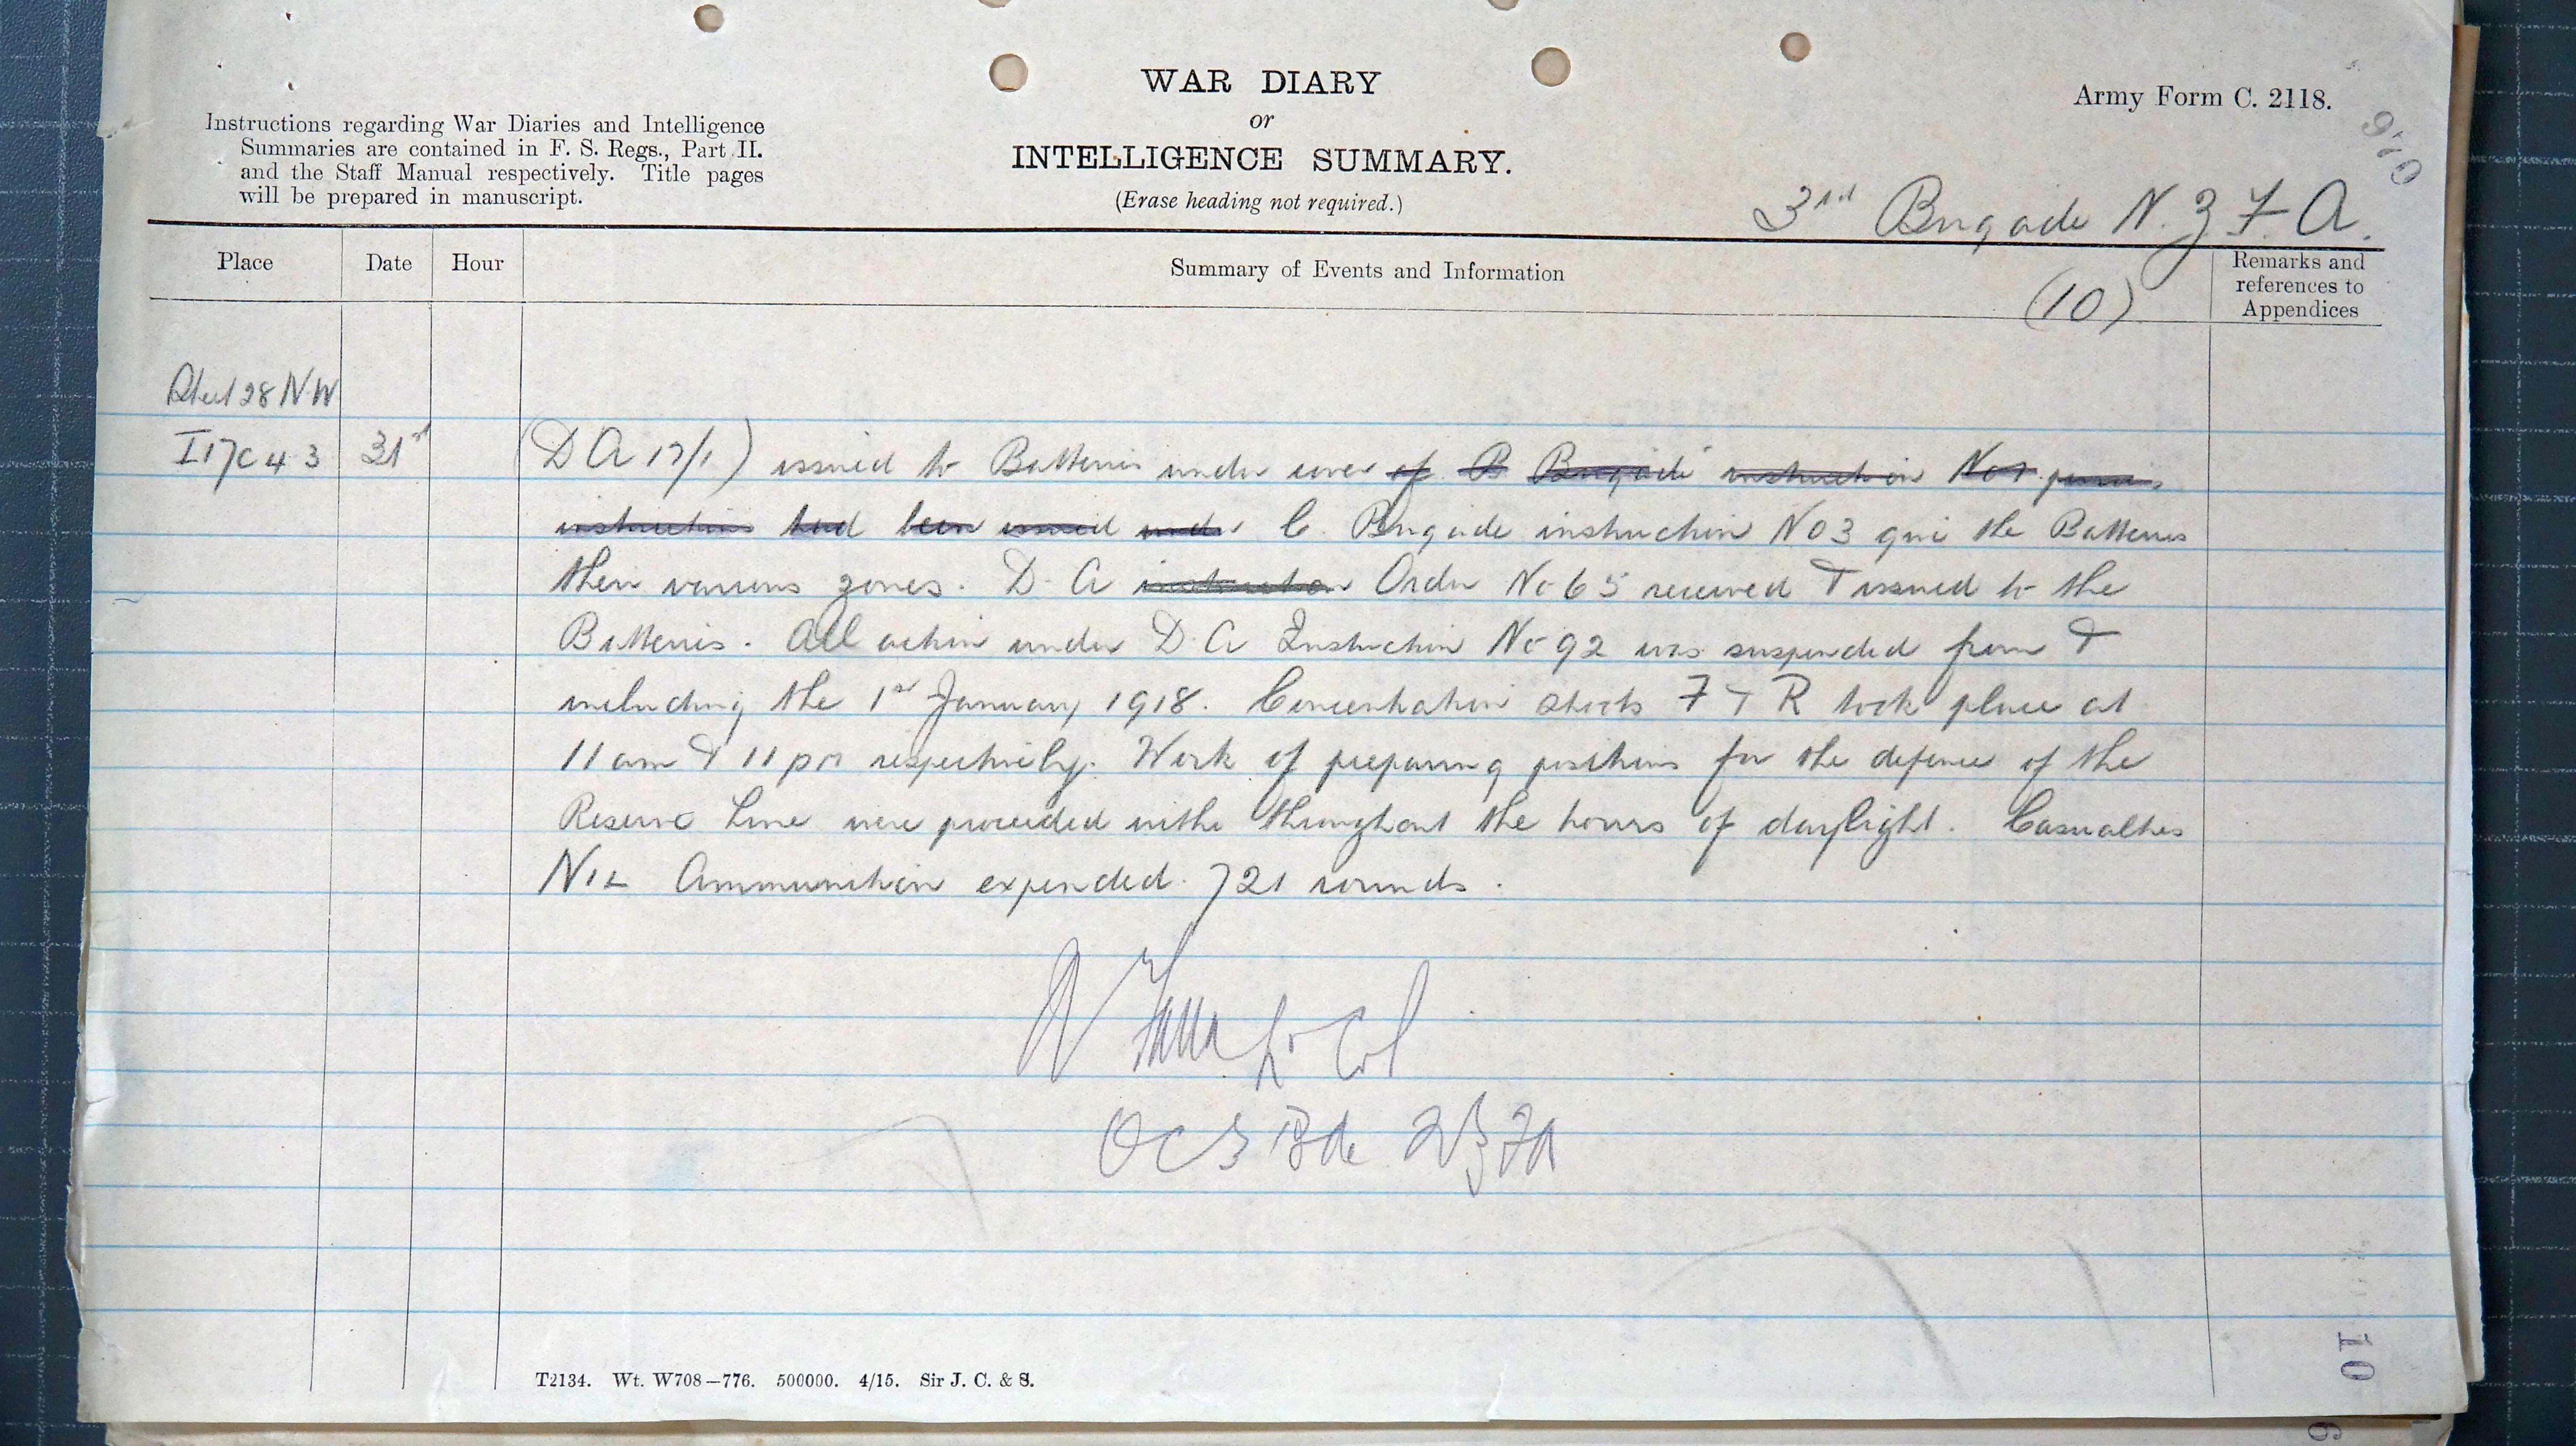 WAR DIARY
or
INTELLIGENCE SUMMARY.
(Erase heading not required.)
Army Form C. 2118.
Instructions regarding War Diaries and Intelligence
Summaries are contained in F. S. Regs., Part II.
and the Staff Manual respectively. Title pages
will be prepared in manuscript.
970
3rd Brigade N. Z F. A.
Place
Date
Hour
Summary of Events and Information
Remarks and
references to
Appendices
(10)
Sheet 28 NW
I17C 4 3
31st
(DA 17/1) issued to Batteries under cover of B Brigade instruction No
instructions had been issued under C. Brigade instruction No 3 give the Batteries
their various zones. D. A instruction Order No 65 received & issued to the
Batteries. All action under D. A Instruction No 92 was suspended from &
including the 1st January 1918. Concentration shoots F & R took place at
11 am & 11 pm respectively. Work of preparing positions for the defence of the
Reserve Line were proceeded withe throughout the hours of daylight. Casualties
NIL Ammunition expended. 721 rounds.
Col
OC 3 Bde NZFA
T2134. Wt. W708—776. 500000. 4/15. Sir J. C. & S.
10
6